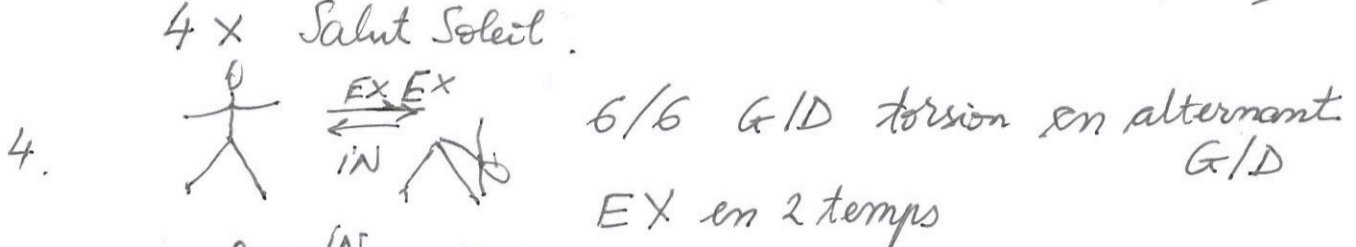 4 X Salut Soleil.
EX EX
4. IN 6/6 G/D torsion en alternant
G/D
EX en 2 temps
IN